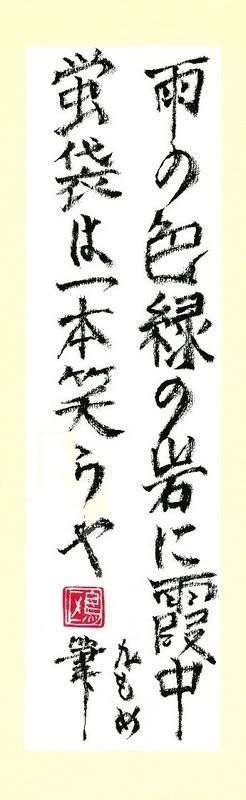 雨の色緑の岩に霞中
蛍袋は一本笑うや
かもめ
筆
鴎